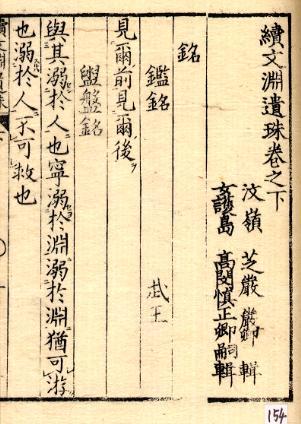 續文淵遺珠卷之下
汶嶺 芝巖 輯
高閔慎正卿 輯
銘
鑑銘 武王
見爾前見爾後
盥盤銘
與其溺於人也寧溺於淵溺於淵猶可游
也溺於人不可救也
154